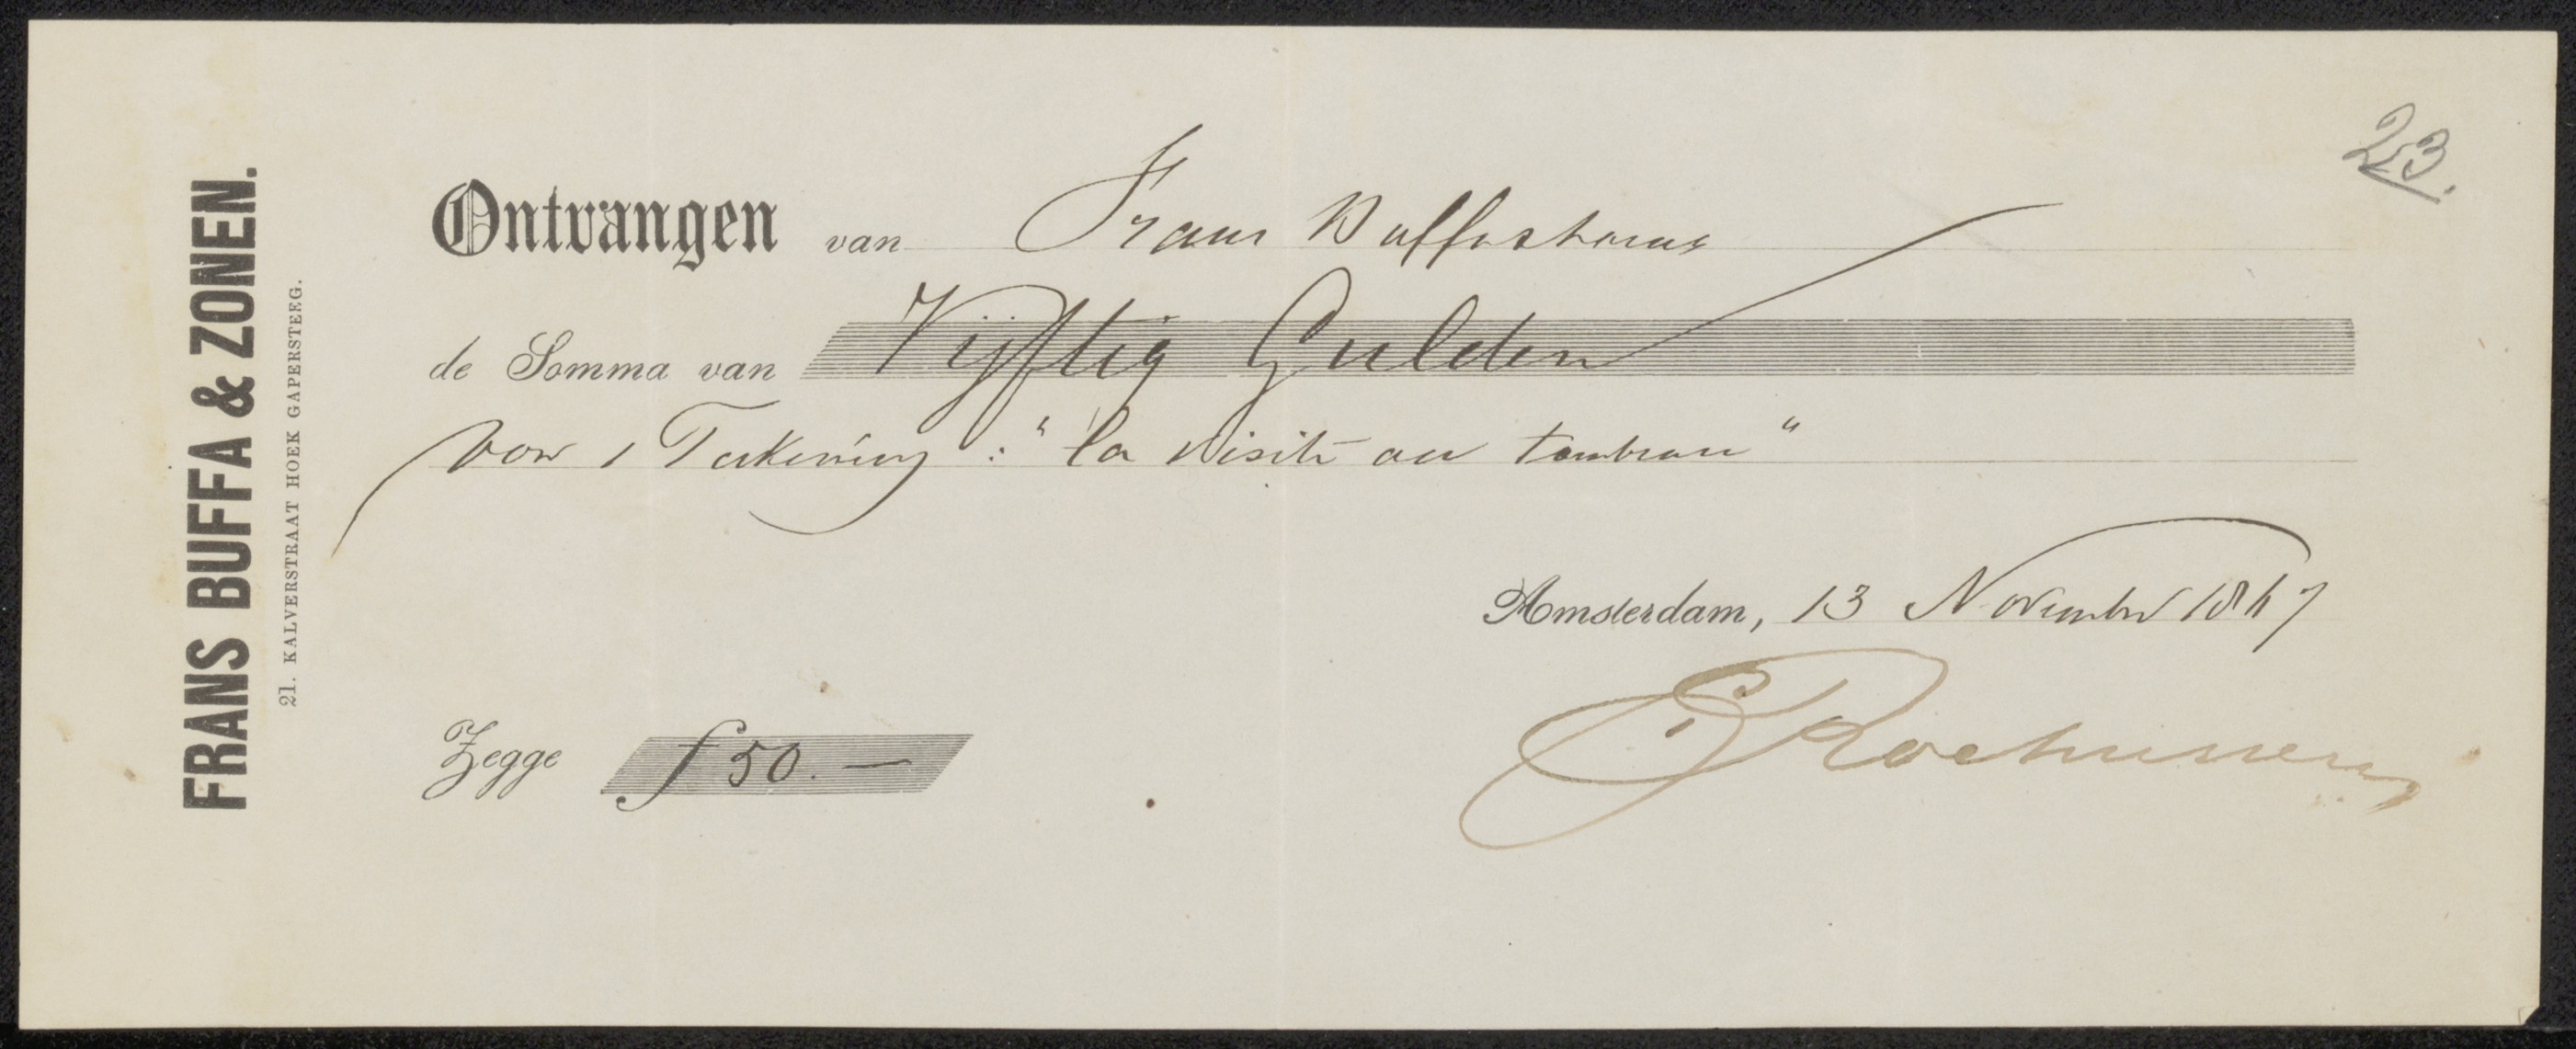 FRANS BUFFA & ZONEN.
21. KALVERSTRAAT HOEK GAPERSTEEG.
23.
Ontvangen van Frans
de Somma van Vijftig Gulden
voor 1 Teekening : "la visite au tombeau"
Amsterdam, 13 November 1867
CRochussen
Zegge f 50. —